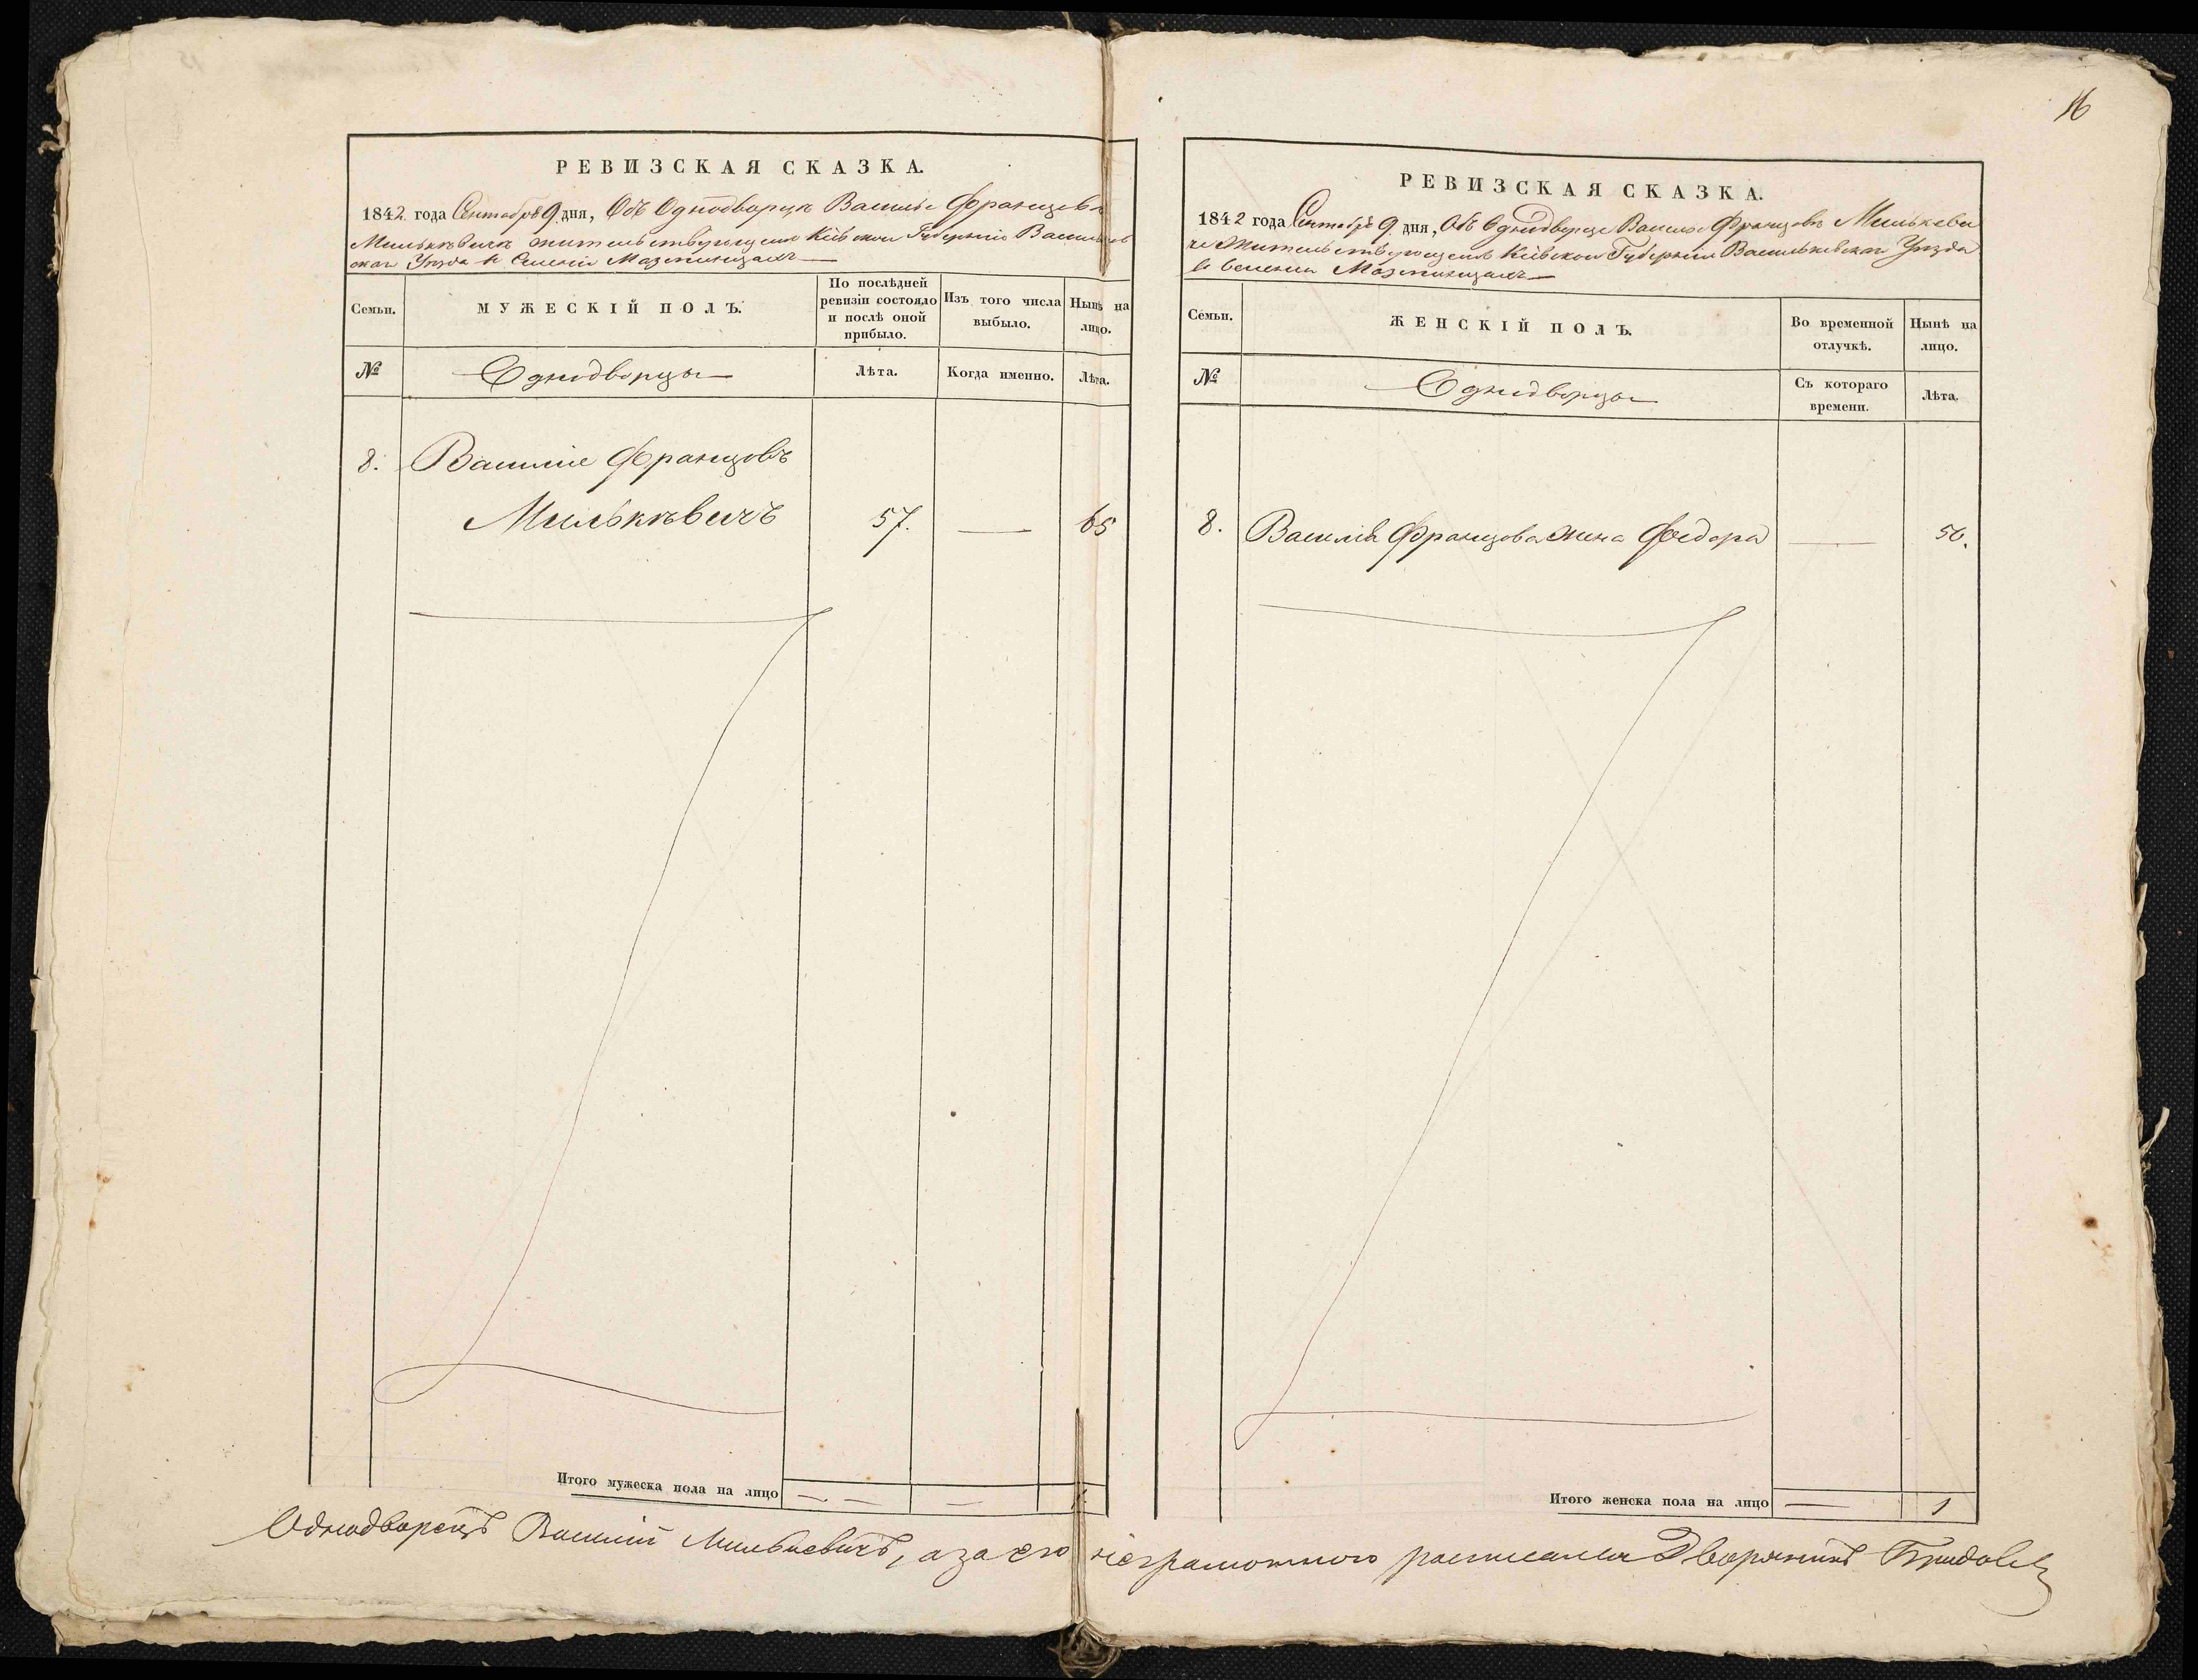 16
РЕВИЗСКАЯ СКАЗКА.
1842 года Сентября 9 дня, Объ Однодворцѣ Василье Францовѣ
Милькѣвичѣ жительствующемъ Кіевской Губерніи Васильков
скаг Уѣзда в Селеніи Мазепинцахъ
Семьи.
МУЖЕСКІЙ ПОЛЪ.
По послѣдней
ревизіи состояло
и послѣ оной
прибыло.
Изъ того числа
выбыло.
Нынѣ на
лицо.
№
Однодворцы
Лѣта.
Когда именно.
Лѣта.
8.
Василіе Францовъ
Милькѣвичъ
57.
—
65
Итого мужеска пола на лицо
— —
—
1.
РЕВИЗСКАЯ СКАЗКА.
1842 года Сентября 9 дня, Объ Однодворце Василье Францовѣ Милькеви
че Жительствующемъ Кіевской Губерніи Васильковскаг Уѣзда
в селеніи Мазепинцахъ
Семьи.
ЖЕНСКІЙ ПОЛЪ.
Во временной
отлучкѣ.
Нынѣ на
лицо.
№
Однодворцы
Съ котораго
времени.
Лѣта.
8.
Василія Францова жена Федора
—
50.
Итого женска пола на лицо
—
1
Однодворецъ Василій Милькевичъ, а за его неграмотного росписался Дворянинъ